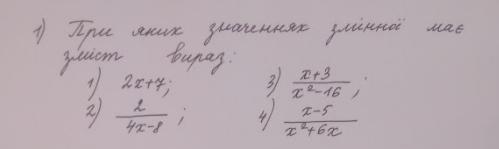 1) При яких значеннях змінної має
зміст вираз:
1) 2x+7;
2) 2/(4x-8) ;
3) (x+3)/(x²-16) ;
4) (x-5)/(x²+6x)